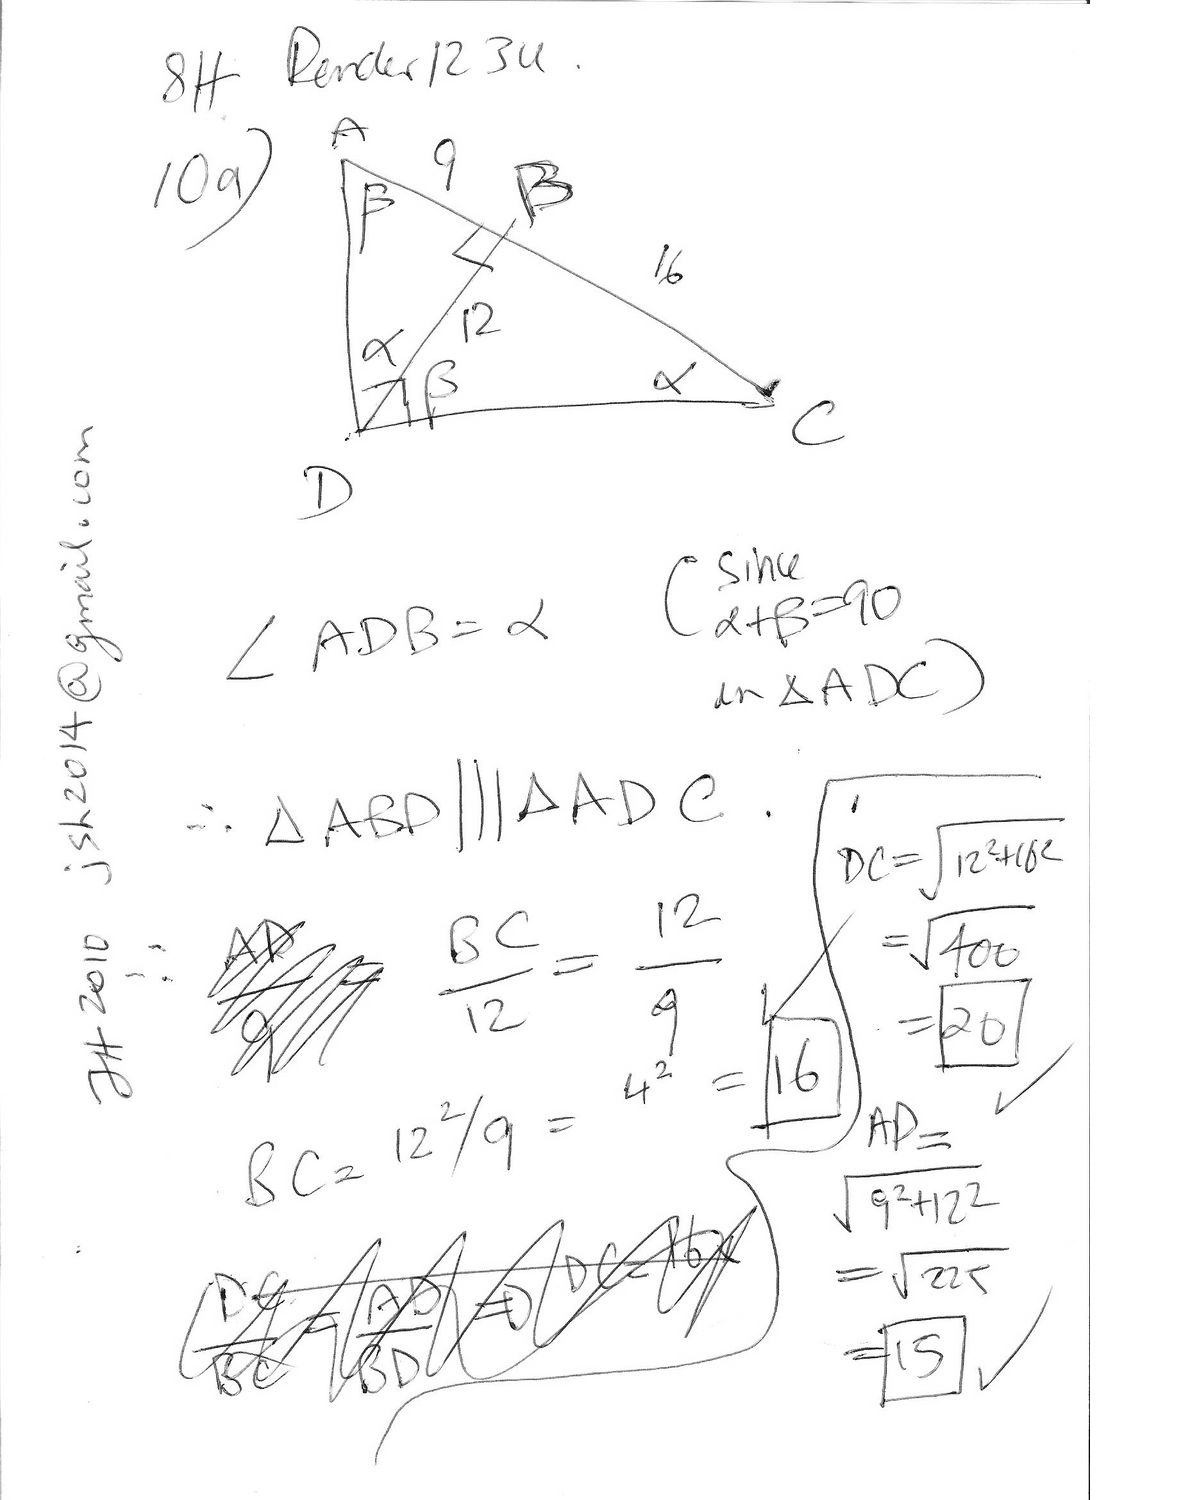 8H Render 12 3U.
10a)
A
9
B
β
16
12
α
β
α
C
D
∠ADB = α
(since
α+β=90
in △ADC)
∴ △ABD ||| △ADC.
∴ AD/9 = BC/12 = 12/9
BC = 12²/9 = 4² = 16
DC/BC = AD/BD
DC = √12²+16²
= √400
= 20
AD =
√9²+12²
= √225
= 15
JH 2010 jsh2014@gmail.com